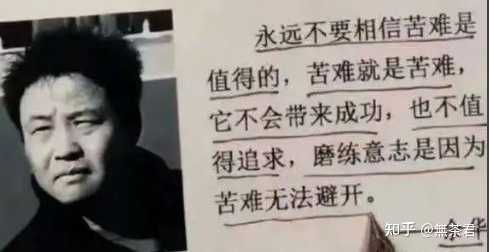 永远不要相信苦难是
值得的，苦难就是苦难，
它不会带来成功，也不值
得追求，磨练意志是因为
苦难无法避开。
——余华
知乎 @無茶君